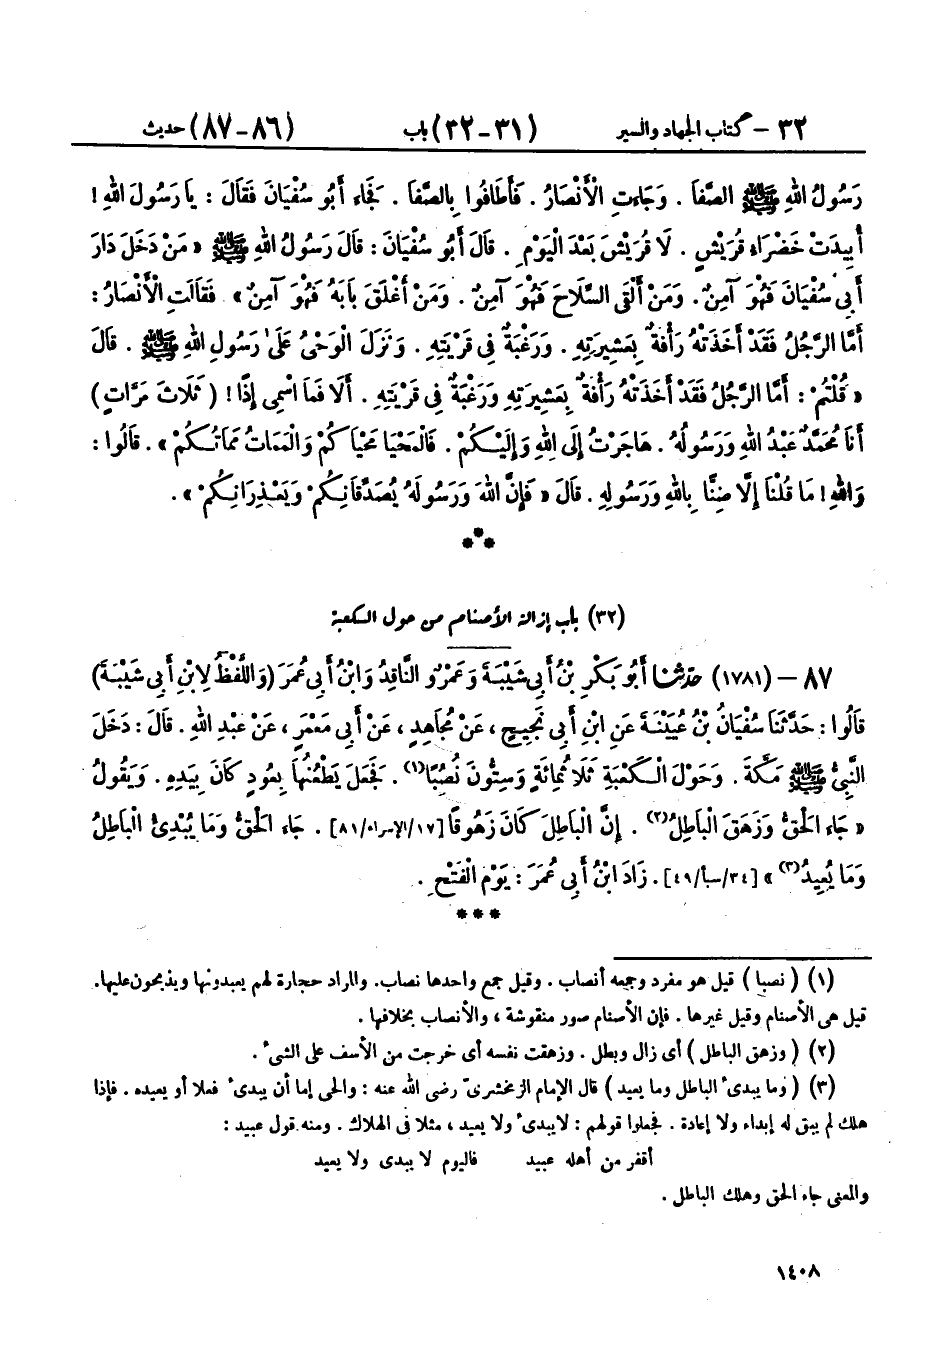 ٣٢ – كتاب الجهاد والسير (٣١-٣٢) باب (٨٦-٨٧) حديث
رَسُولُ اللهِ ﷺ الصَّفَا . وَجَاءتِ الْأَنْصَارُ . فَأَطَافُوا بِالصَّفَا . فَجَاء أَبُو سُفْيَانَ فَقَالَ : يا رَسُولَ اللهِ !
أُبِيدَتْ خَضْرَاء قُرَيْشٍ . لَا قُرَيْشَ بَعْدَ الْيَوْمِ . قَالَ أَبُو سُفْيَانَ : قالَ رَسُولُ اللهِ ﷺ « مَنْ دَخَلَ دَارَ
أَبِي سُفْيَانَ فَهُوَ آمِنٌ . وَمَنْ أَلْقَى السَّلَاحَ فَهُوَ آمِنٌ . وَمَنْ أَغْلَقَ بَابَهُ فَهُوَ آمِنٌ » . فَقَالَتِ الْأَنْصَارُ :
أَمَّا الرَّجُلُ فَقَدْ أَخَذَتْهُ رَأْفَةٌ بِعَشِيرَتِهِ . وَرَغْبَةٌ فِي قَرْيَتِهِ . وَنَزَلَ الْوَحْيُ عَلَى رَسُولِ اللهِ ﷺ . قالَ
« قُلْتُمْ : أَمَّا الرَّجُلُ فَقَدْ أَخَذَتْهُ رَأْفَةٌ بِعَشِيرَتِهِ وَرَغْبَةٌ فِي قَرْيَتِهِ . أَلَا فَمَا اسْمِي إِذًا ! ( ثَلَاثَ مَرَّاتٍ )
أَنَا مُحَمَّدٌ عَبْدُ اللهِ وَرَسُولُهُ . هَاجَرْتُ إِلَى اللهِ وَإِلَيْكُمْ . فَالْمَحْيَا مَحْيَاكُمْ وَالْمَمَاتُ مَمَاتُكُمْ » . قَالُوا :
وَاللهِ ! مَا قُلْنَا إِلَّا ضِنًّا بِاللهِ وَرَسُولِهِ . قالَ « فَإِنَّ اللهَ وَرَسُولَهُ يُصَدِّقَانِكُمْ وَيَعْذِرَانِكُمْ » .
***
(٣٢) باب إزالة الأصنام من حول الكعبة
٨٧ – (١٧٨١) حدثنا أَبُو بَكْرِ بْنُ أَبِي شَيْبَةَ وَعَمْرٌو النَّاقِدُ وَابْنُ أَبِي عُمَرَ (وَاللَّفْظُ لِابْنِ أَبِي شَيْبَةَ)
قَالُوا : حَدَّثَنَا سُفْيَانُ بْنُ عُيَيْنَةَ عَنِ ابْنِ أَبِي نَجِيحٍ ، عَنْ مُجَاهِدٍ ، عَنْ أَبِي مَعْمَرٍ ، عَنْ عَبْدِ اللهِ . قَالَ : دَخَلَ
النَّبِيُّ ﷺ مَكَّةَ . وَحَوْلَ الْكَعْبَةِ ثَلَاثُمِائَةٍ وَسِتُّونَ نُصُبًا(١) . فَجَعَلَ يَطْعُنُهَا بِعُودٍ كَانَ بِيَدِهِ . وَيَقُولُ
« جَاء الْحَقُّ وَزَهَقَ الْبَاطِلُ(٢) . إِنَّ الْبَاطِلَ كَانَ زَهُوقًا [١٧/الإسراء/٨١] . جَاء الْحَقُّ وَمَا يُبْدِئُ الْبَاطِلُ
وَمَا يُعِيدُ(٣) » [٣٤/سبأ/٤٩] . زَادَ ابْنُ أَبِي عُمَرَ : يَوْمَ الْفَتْحِ .
***
(١) ( نصبا ) قيل هو مفرد وجمعه أنصاب . وقيل جمع واحدها نصاب. والمراد حجارة لهم يعبدونها ويذبحون عليها.
قيل هي الأصنام وقيل غيرها . فإن الأصنام صور منقوشة ، والأنصاب بخلافها .
(٢) ( وزهق الباطل ) أى زال وبطل . وزهقت نفسه أى خرجت من الأسف على الشىء .
(٣) ( وما يبدىء الباطل وما يعيد ) قال الإمام الزمخشرىّ رضى الله عنه : والحى إما أن يبدىء فعلا أو يعيده . فإذا
هلك لم يبق له إبداء ولا إعادة . فجعلوا قولهم : لا يبدىء ولا يعيد ، مثلا فى الهلاك . ومنه قول عبيد :
أقفر من أهله عبيد فاليوم لا يبدى ولا يعيد
والمعنى جاء الحق وهلك الباطل .
١٤٠٨